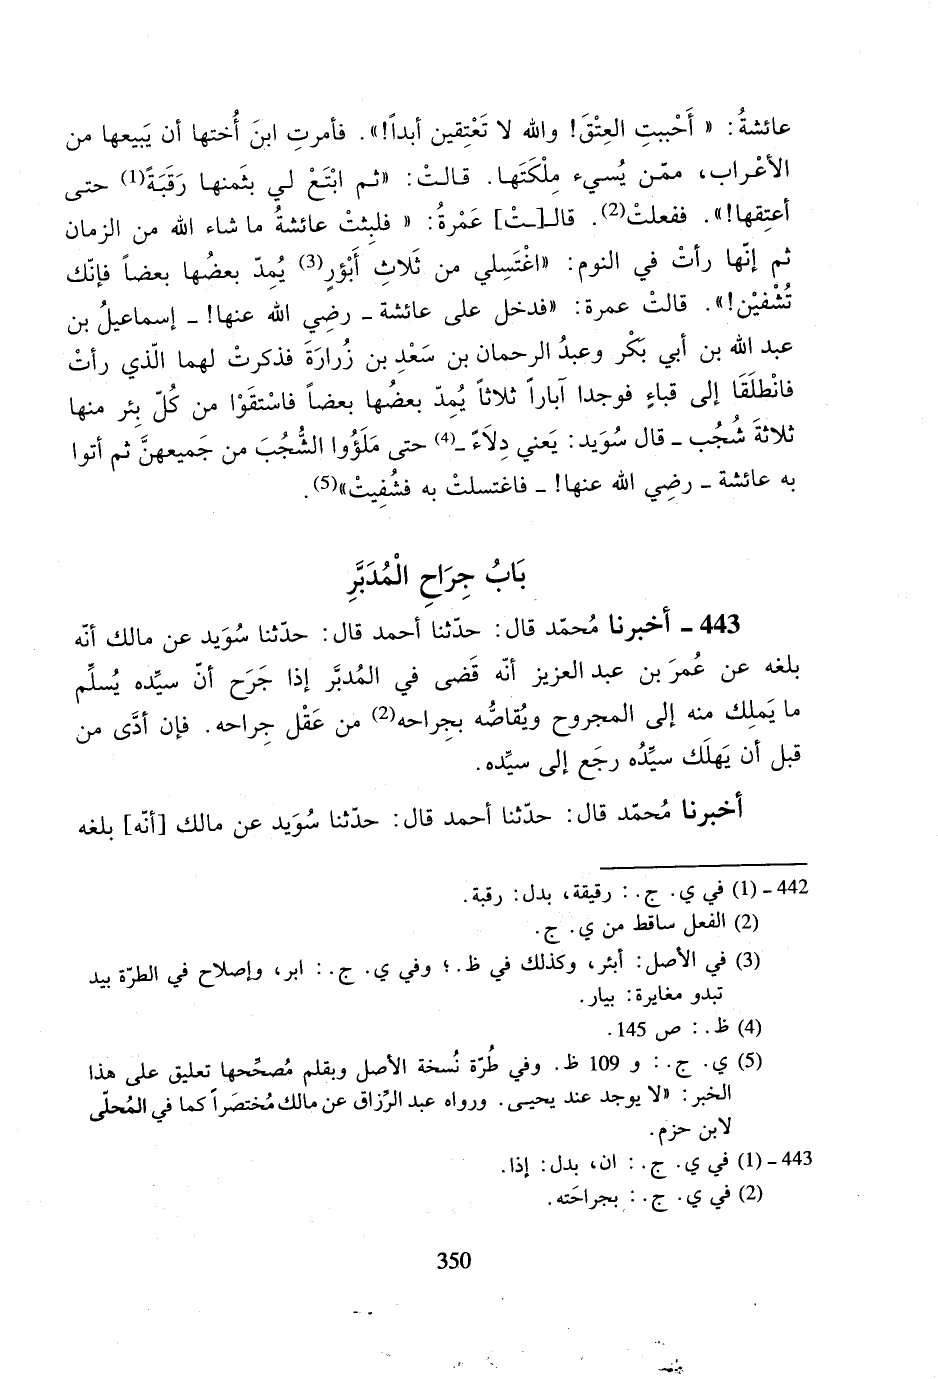 عائشةُ: « أَحْببتِ العِتْقَ! والله لا تَعْتِقين أبداً!». فأمرتِ ابنَ أُختها أن يَبيعها من
الأعْراب، ممّن يُسيء مِلْكَتَها. قالتْ: «ثم ابْتَعْ لي بثمنها رَقَبَةً(1) حتى
أعتِقها!». ففعلتْ(2). قالـ[ـتْ] عَمْرةُ: « فلبِثتْ عائشةُ ما شاء الله من الزمان
ثم إنّها رأتْ في النوم: «اغْتَسِلي من ثَلاثِ أَبْؤرٍ(3) يُمِدّ بعضُها بعضاً فإنّك
تُشْفيْن!». قالتْ عمرة: «فدخل على عائشة ـ رضِي الله عنها! ـ إسماعيلُ بن
عبد الله بن أبي بَكْر وعبدُ الرحمان بن سَعْدِ بن زُرارَةَ فذكرتْ لهما الّذي رأتْ
فانْطلَقَا إلى قباءٍ فوجدا آباراً ثلاثاً يُمِدّ بعضُها بعضاً فاسْتقَوْا من كُلّ بئر منها
ثلاثةَ شُجُب ـ قال سُوَيد: يَعني دِلاَءً ـ(4) حتى مَلَؤُوا الشُّجُبَ من جَميعهنَّ ثم أتوا
به عائشة ـ رضِي الله عنها! ـ فاغتسلتْ به فشُفِيتْ»(5).
بَابُ جِرَاحِ الْمُدَبَّرِ
443 ـ أخبرنا مُحمّد قال: حدّثنا أحمد قال: حدّثنا سُوَيد عن مالك أنّه
بلغه عن عُمرَ بن عبد العزيز أنّه قَضى في المُدبَّر إذا جَرَح أنّ سيِّده يُسلِّم
ما يَملِك منه إلى المجروح ويُقاصُّه بجراحه(2) من عَقْل جِراحه. فإن أدَّى من
قبل أن يَهلَك سيِّدُه رجَع إلى سيِّده.
أخبرنا مُحمّد قال: حدّثنا أحمد قال: حدّثنا سُوَيد عن مالك [أنّه] بلغه
442 ـ (1) في ي. ج.: رقيقة، بدل: رقبة.
(2) الفعل ساقط من ي. ج.
(3) في الأصل: أبئر، وكذلك في ظ.؛ وفي ي. ج.: ابر، وإصلاح في الطرّة بيد
تبدو مغايرة: بيار.
(4) ظ.: ص 145.
(5) ي. ج.: و 109 ظ. وفي طُرّة نُسخة الأصل وبقلم مُصحِّحها تعليق على هذا
الخبر: «لا يوجد عند يحيـى. ورواه عبد الرِّزاق عن مالك مُختصَراً كما في المُحلّى
لابن حزم.
443 ـ (1) في ي. ج.: ان، بدل: إذا.
(2) في ي. ج.: بجراحَته.
350